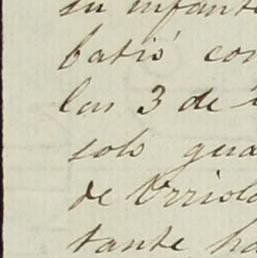 su infante
batió con
las 3 de
solo gua
de Urriola
tante ha